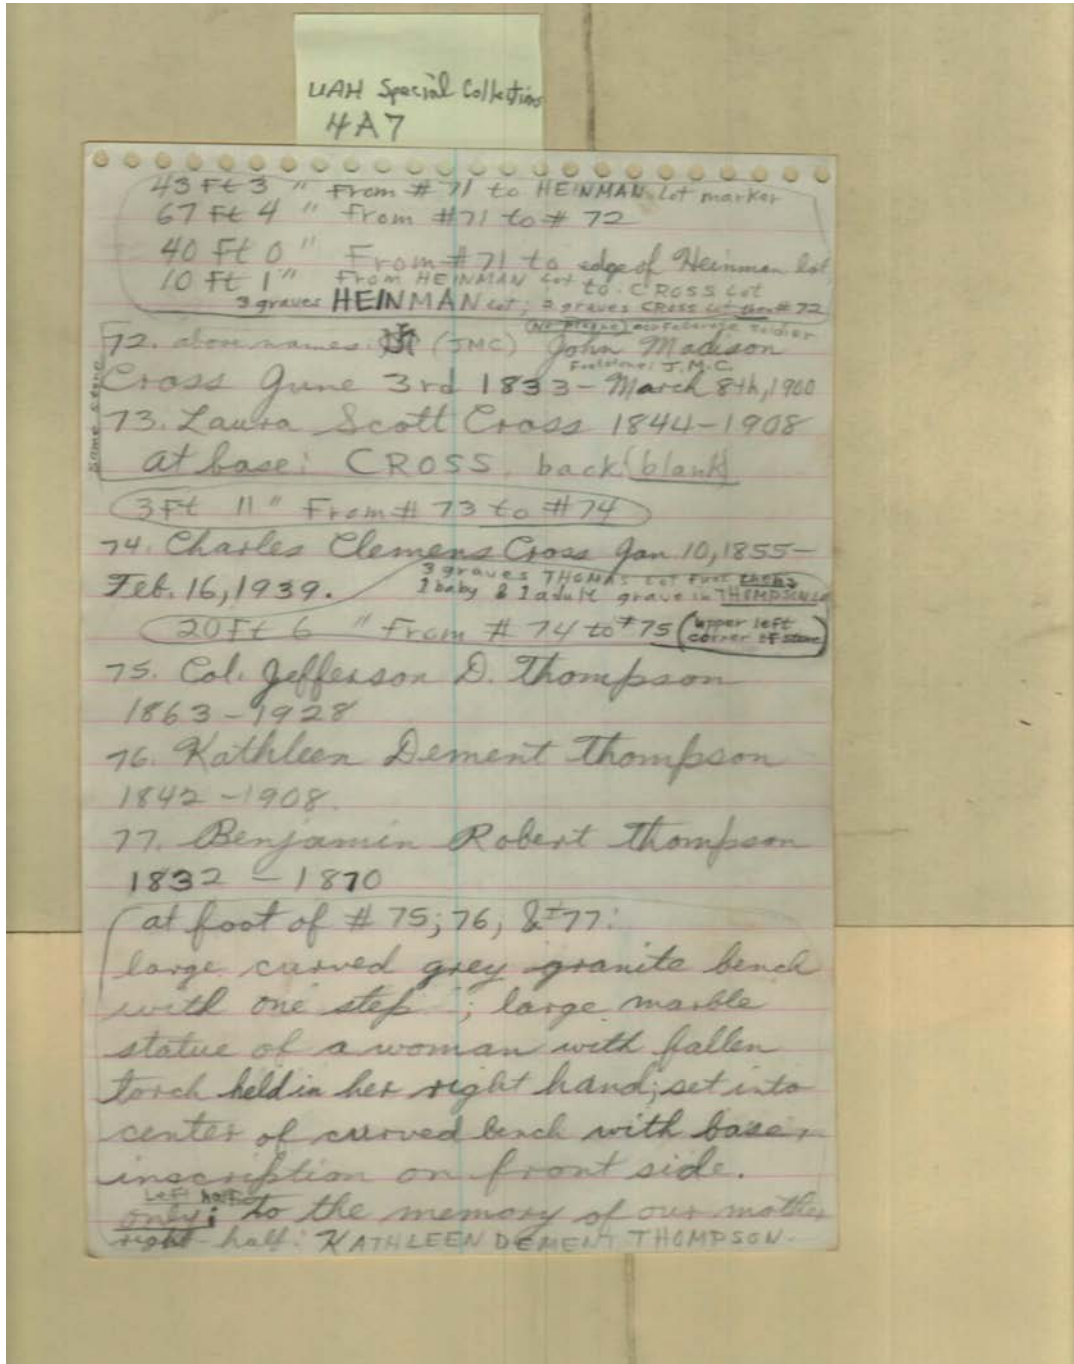 UAH Special Collections
4A7
43 Ft 3 " From # 71 to HEINMAN Lot marker
67 Ft 4 " from #71 to # 72
40 Ft 0 " From #71 to edge of Heinman lot
10 Ft 1 " From HEINMAN Lot to CROSS Lot
3 graves HEINMAN Lot; 2 graves CROSS Lot then # 72
(No plaque) confederate soldier
72. above names: (JMC) John Madison
Footstone: J.M.C.
Cross June 3rd 1833 - March 8th, 1900
same stone
73. Laura Scott Cross 1844-1908
at base: CROSS. back (blank)
3Ft 11" From # 73 to #74
74. Charles Clemens Cross Jan 10, 1855-
Feb. 16, 1939.
3 graves THOMAS Lot First then
1 baby & 1 adult grave in THOMPSON
20 Ft 6 " From # 74 to #75 (upper left
corner of stone)
75. Col. Jefferson D. Thompson
1863-1928
76. Kathleen Dement Thompson
1842-1908.
77. Benjamin Robert Thompson
1832 - 1870
at foot of # 75; 76, & #77:
large curved grey granite bench
with one step ; large marble
statue of a woman with fallen
torch held in her right hand; set into
center of curved bench with base,
inscription on front side.
Left half
only: to the memory of our mother
right half: KATHLEEN DEMENT THOMPSON.